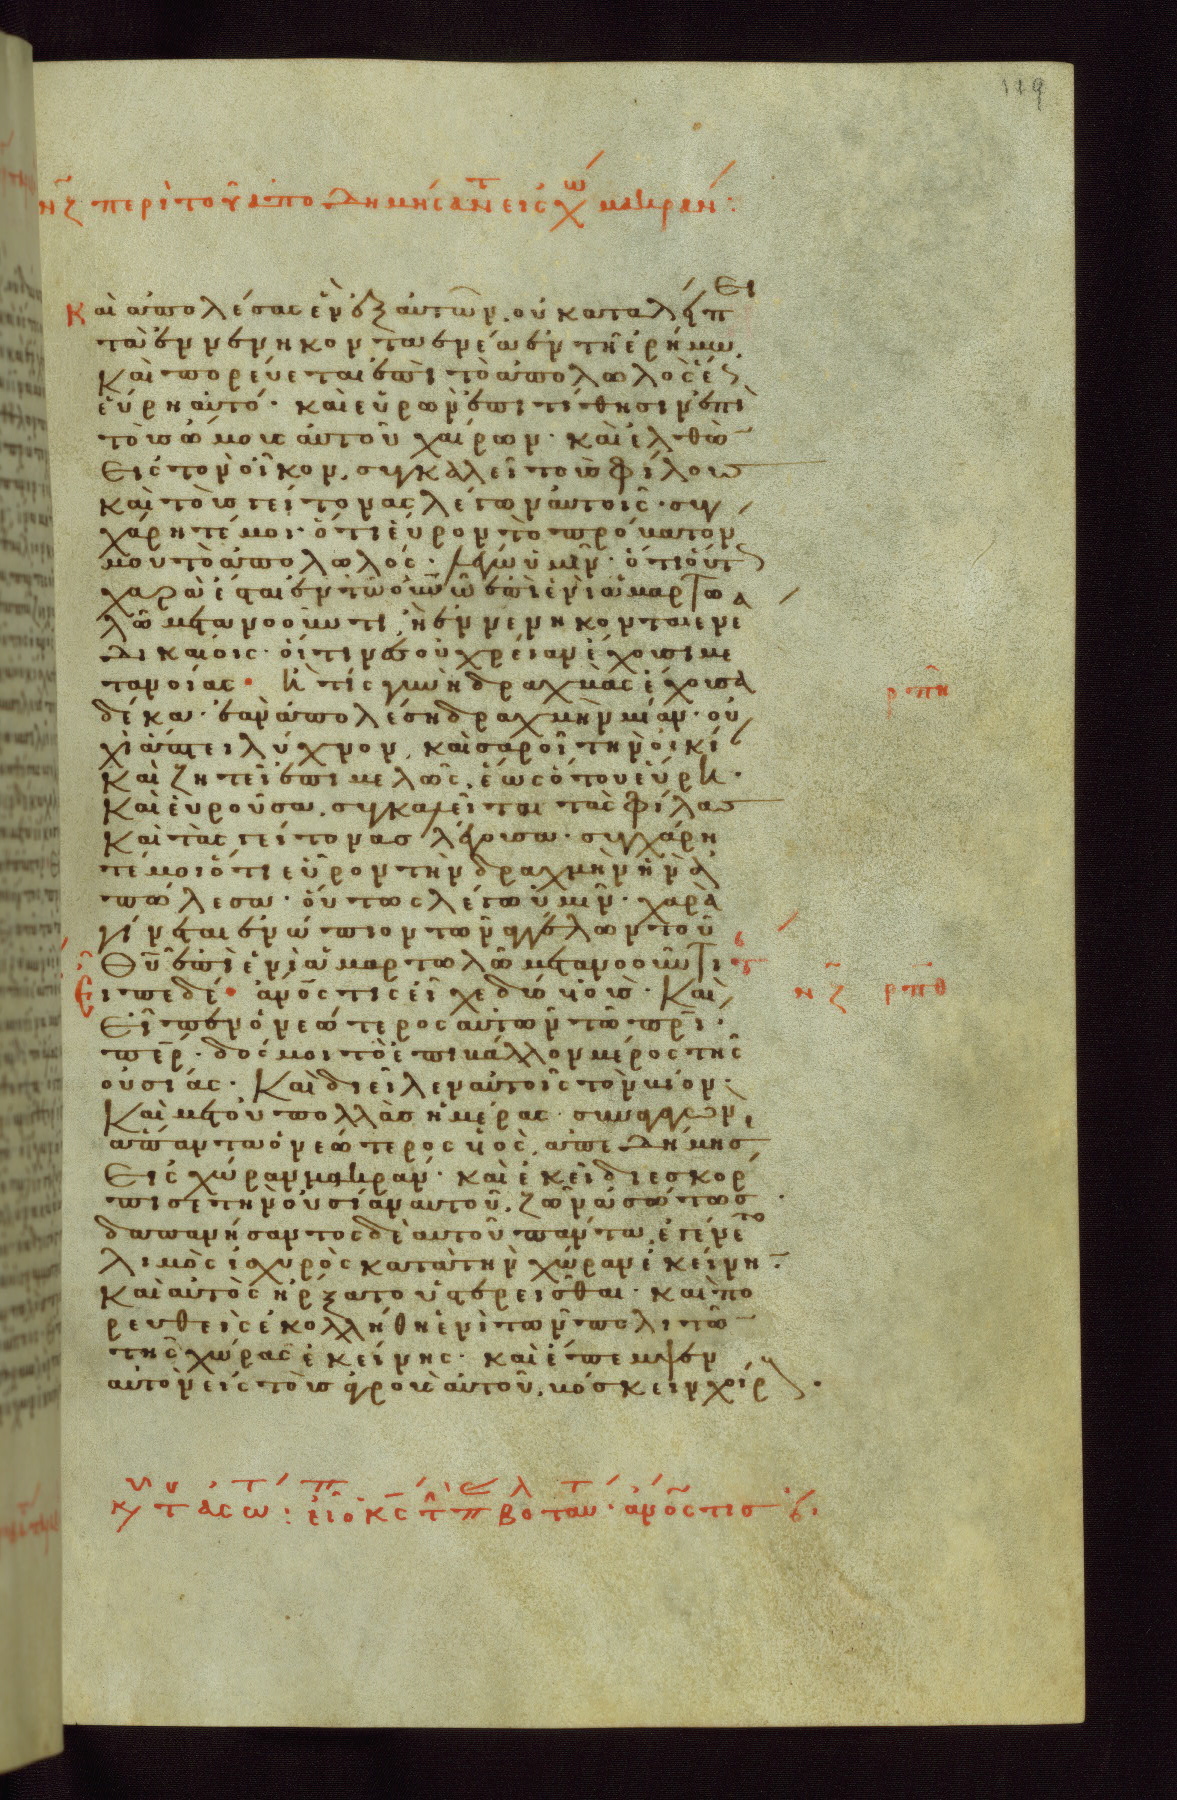 119
νζ περὶ τοῦ ἀποδημήσαντ εἰς χω μακράν:
Καὶ ἀπολέσας ἓν ἐξ αὐτῶν. οὐ καταλείπει
τὰ ἐννενηκονταεννέα ἐν τῇ ἐρήμω.
καὶ πορεύεται ἐπὶ τὸ ἀπολωλὸς ἕως
εὕρη αὐτό· καὶ εὑρὼν ἐπιτίθησιν ἐπὶ
τοὺς ὤμους αὐτοῦ χαίρων· καὶ ἐλθὼ̄
εἰς τὸν οἶκον, συγκαλεῖ τοὺς φίλους
καὶ τοὺς γείτονας λέγων αὐτοῖς· συγ
χάρητέ μοι· ὅτι εὗρον τὸ πρόβατον
μου τὸ ἀπολωλός· λέγω ὑμῖν· ὅτι οὕτως
χαρὰ ἔσται ἐν τῶ οὐνῶ ἐπὶ ἑνὶ ἁμαρτω
λῶ μετανοοῦντι, ἢ ἐννενηκονταεννέα
δικαίοις· οἵτινες οὐ χρείαν ἔχουσι με
τανοίας· Ἢ τίς γυνὴ δραχμὰς ἔχουσα
ρπη
δέκα· ἐὰν ἀπολέση δραχμὴν μίαν· οὐ
χὶ ἅπτει λύχνον, καὶ σαροῖ τὴν οἰκί
καὶ ζητεῖ ἐπιμελῶς, ἕως ὅτου εὕρη·
καὶ εὑροῦσα, συγκαλεῖται τὰς φίλας
καὶ τὰς γείτονας λέγουσα· συγχάρη
τέ μοι ὅτι εὗρον τὴν δραχμὴν ἣν ἀ
πώλεσα· οὕτως λέγω ὑμῖν· χαρὰ
γίνεται ἐνώπιον τῶν ἀγγέλων τοῦ
θῦ ἐπὶ ἑνὶ ἁμαρτωλῶ μετανοοῦντι
Εἶπε δέ· ἀνος τις εἶχε δύο υἱούς· Καὶ
νζ ρπθ
εἶπεν ὁ νεώτερος αὐτῶν τῶ πρι·
περ· δός μοι τὸ ἐπιβάλλον μέρος τῆς
οὐσίας· Καὶ διεῖλεν αὐτοῖς τὸν βίον·
Καὶ μετ οὐ πολλὰς ἡμέρας συναγαγὼν,
ἅπαντα ὁ νεώτερος υἱὸς, ἀπεδήμησ
εἰς χώραν μακράν· καὶ ἐκεῖ διεσκόρ
πισε τὴν οὐσίαν αὐτοῦ, ζῶν ἀσώτως·
δαπανήσαντος δὲ αὐτοῦ πάντα, ἐγένετο
λιμὸς ἰσχυρὸς κατὰ τὴν χώραν ἐκείνη̄·
καὶ αὐτὸς ἤρξατο ὑστερεῖσθαι· καὶ πο
ρευθεὶς ἐκολλήθη ἑνὶ τῶν πολιτῶ̄
τῆς χώρας ἐκείνης· καὶ ἔπεμψεν
αὐτὸν εἰς τοὺς ἀγροὺς αὐτοῦ, βόσκειν χοίρ·
κυ τ ἀσω: εἶ ὁ κς τ π β ο ταυ· ἀνος τις